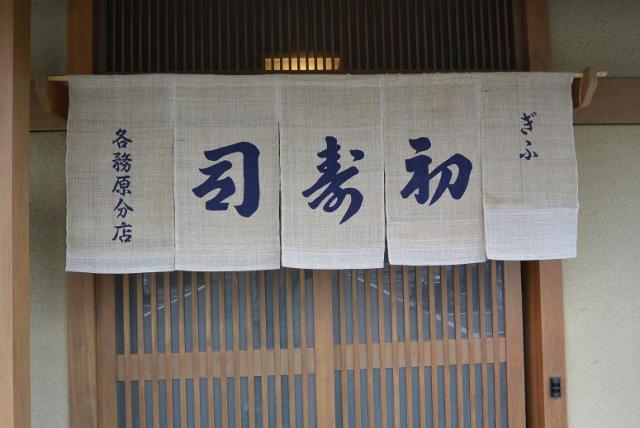 ぎふ
初寿司
各務原分店